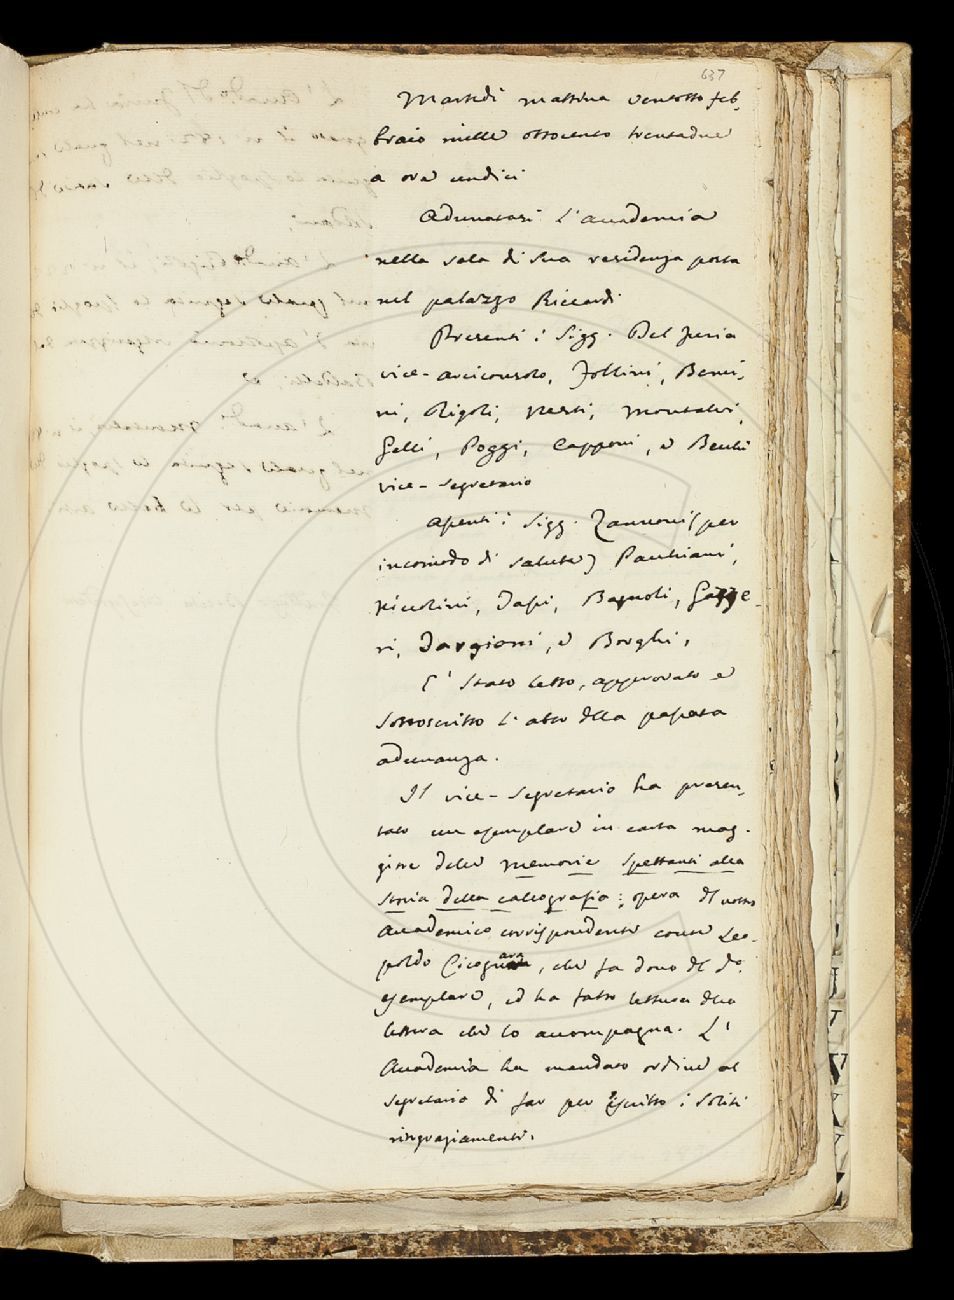 637
Martedì mattina ventotto feb-
braio mille ottocento trentadue
a ore undici
Adunatasi l'accademia
nella sala di sua residenza posta
nel palazzo Riccardi
Presenti i Sigg. Del Furia
vice-arciconsolo, Follini, Benci-
ni, Rigoli, Nesti, Montalvi,
Gelli, Poggi, Capponi, e Becchi
vice-segretario
Assenti i Sigg. Zannoni (per
incomodo di salute) Pacchiani,
Niccolini, Tassi, Bagnoli, Gazze-
ri, Targioni, e Borghi.
E' stato letto, approvato e
sottoscritto l'atto della passata
adunanza.
Il vice-segretario ha presen-
tato un esemplare in carta mag-
giore delle memorie spettanti alla
storia della calcografia; opera del nostro
Accademico corrispondente conte Leo-
poldo Cicognara, che fa dono del do.
esemplare, ed ha fatto lettura della
lettera che lo accompagna. L'
Accademia ha mandato ordine al
segretario di far per iscritto i soliti
ringraziamenti.